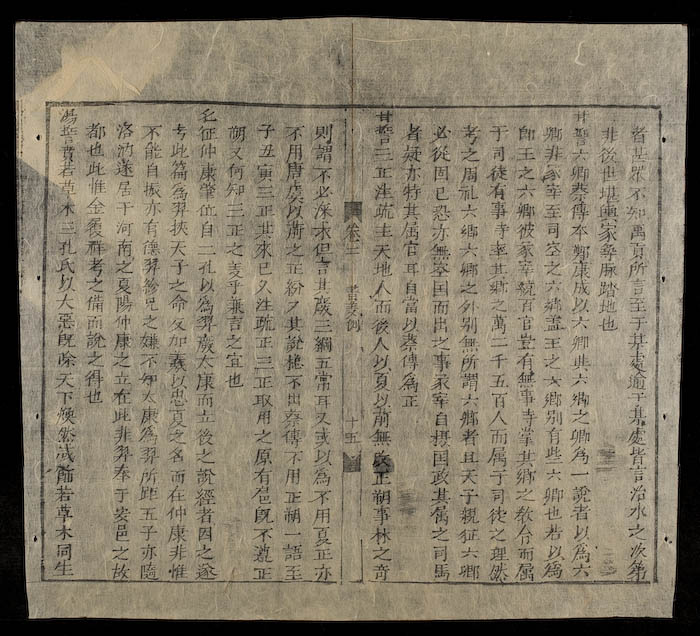 者甚眾不知禹貢所言至于某處逾于某處皆言治水之次第
非後世堪輿家尋脈踏地也
甘誓六卿蔡傳本鄭康成以六卿與六鄉之卿為一說者以為六
卿非冢宰至司空之六卿蓋王之六鄉別有此六卿也若以為
即王之六卿彼冢宰統百官豈有無事寺掌其鄉之教令而属
于司徒有事寺率其鄉之萬二千五百人而属于司徒之理然
考之周礼六鄉六卿之外别無所謂六卿者且天子親征六卿
必從固已恐亦無空国而出之事冢宰自摄国政其属之司馬
者疑亦特其属官耳自當以蔡傳為正
甘誓三正注疏主天地人而後人以夏以前無改正朔事林之奇
卷二 書考例 十五
則謂不必深求但言其歲三綱五常耳又或以為不用夏正亦
不用唐虞以前之正紛々其說揔不出蔡傳不用正朔一語至
子丑寅三正其來已久注疏三正取用之原有旨既不遵正
朔又何知三正之義乎兼言之宜也
征仲康肇位自二孔以為羿廢太康而立後之說經者因之遂
考此篇為羿挾天子之命久加羲以忠夏之名而在仲康非惟
不能自振亦有德羿紛兄之嫌不知太康為羿所距五子亦隨
洛汭遂居于河南之夏陽仲康之立在此非羿奉于安邑之故
都也此惟金履祥考之備而說之得也
湯誥賁若草木二孔氏以大惡既除天下煥然咸飾若草木同生